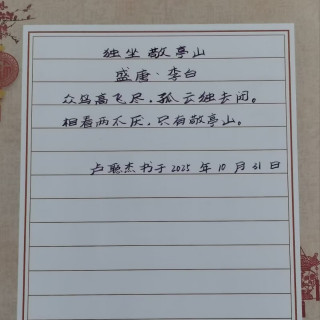 独坐敬亭山
盛唐·李白
众鸟高飞尽，孤云独去闲。
相看两不厌，只有敬亭山。
卢聪杰书于2025年10月31日